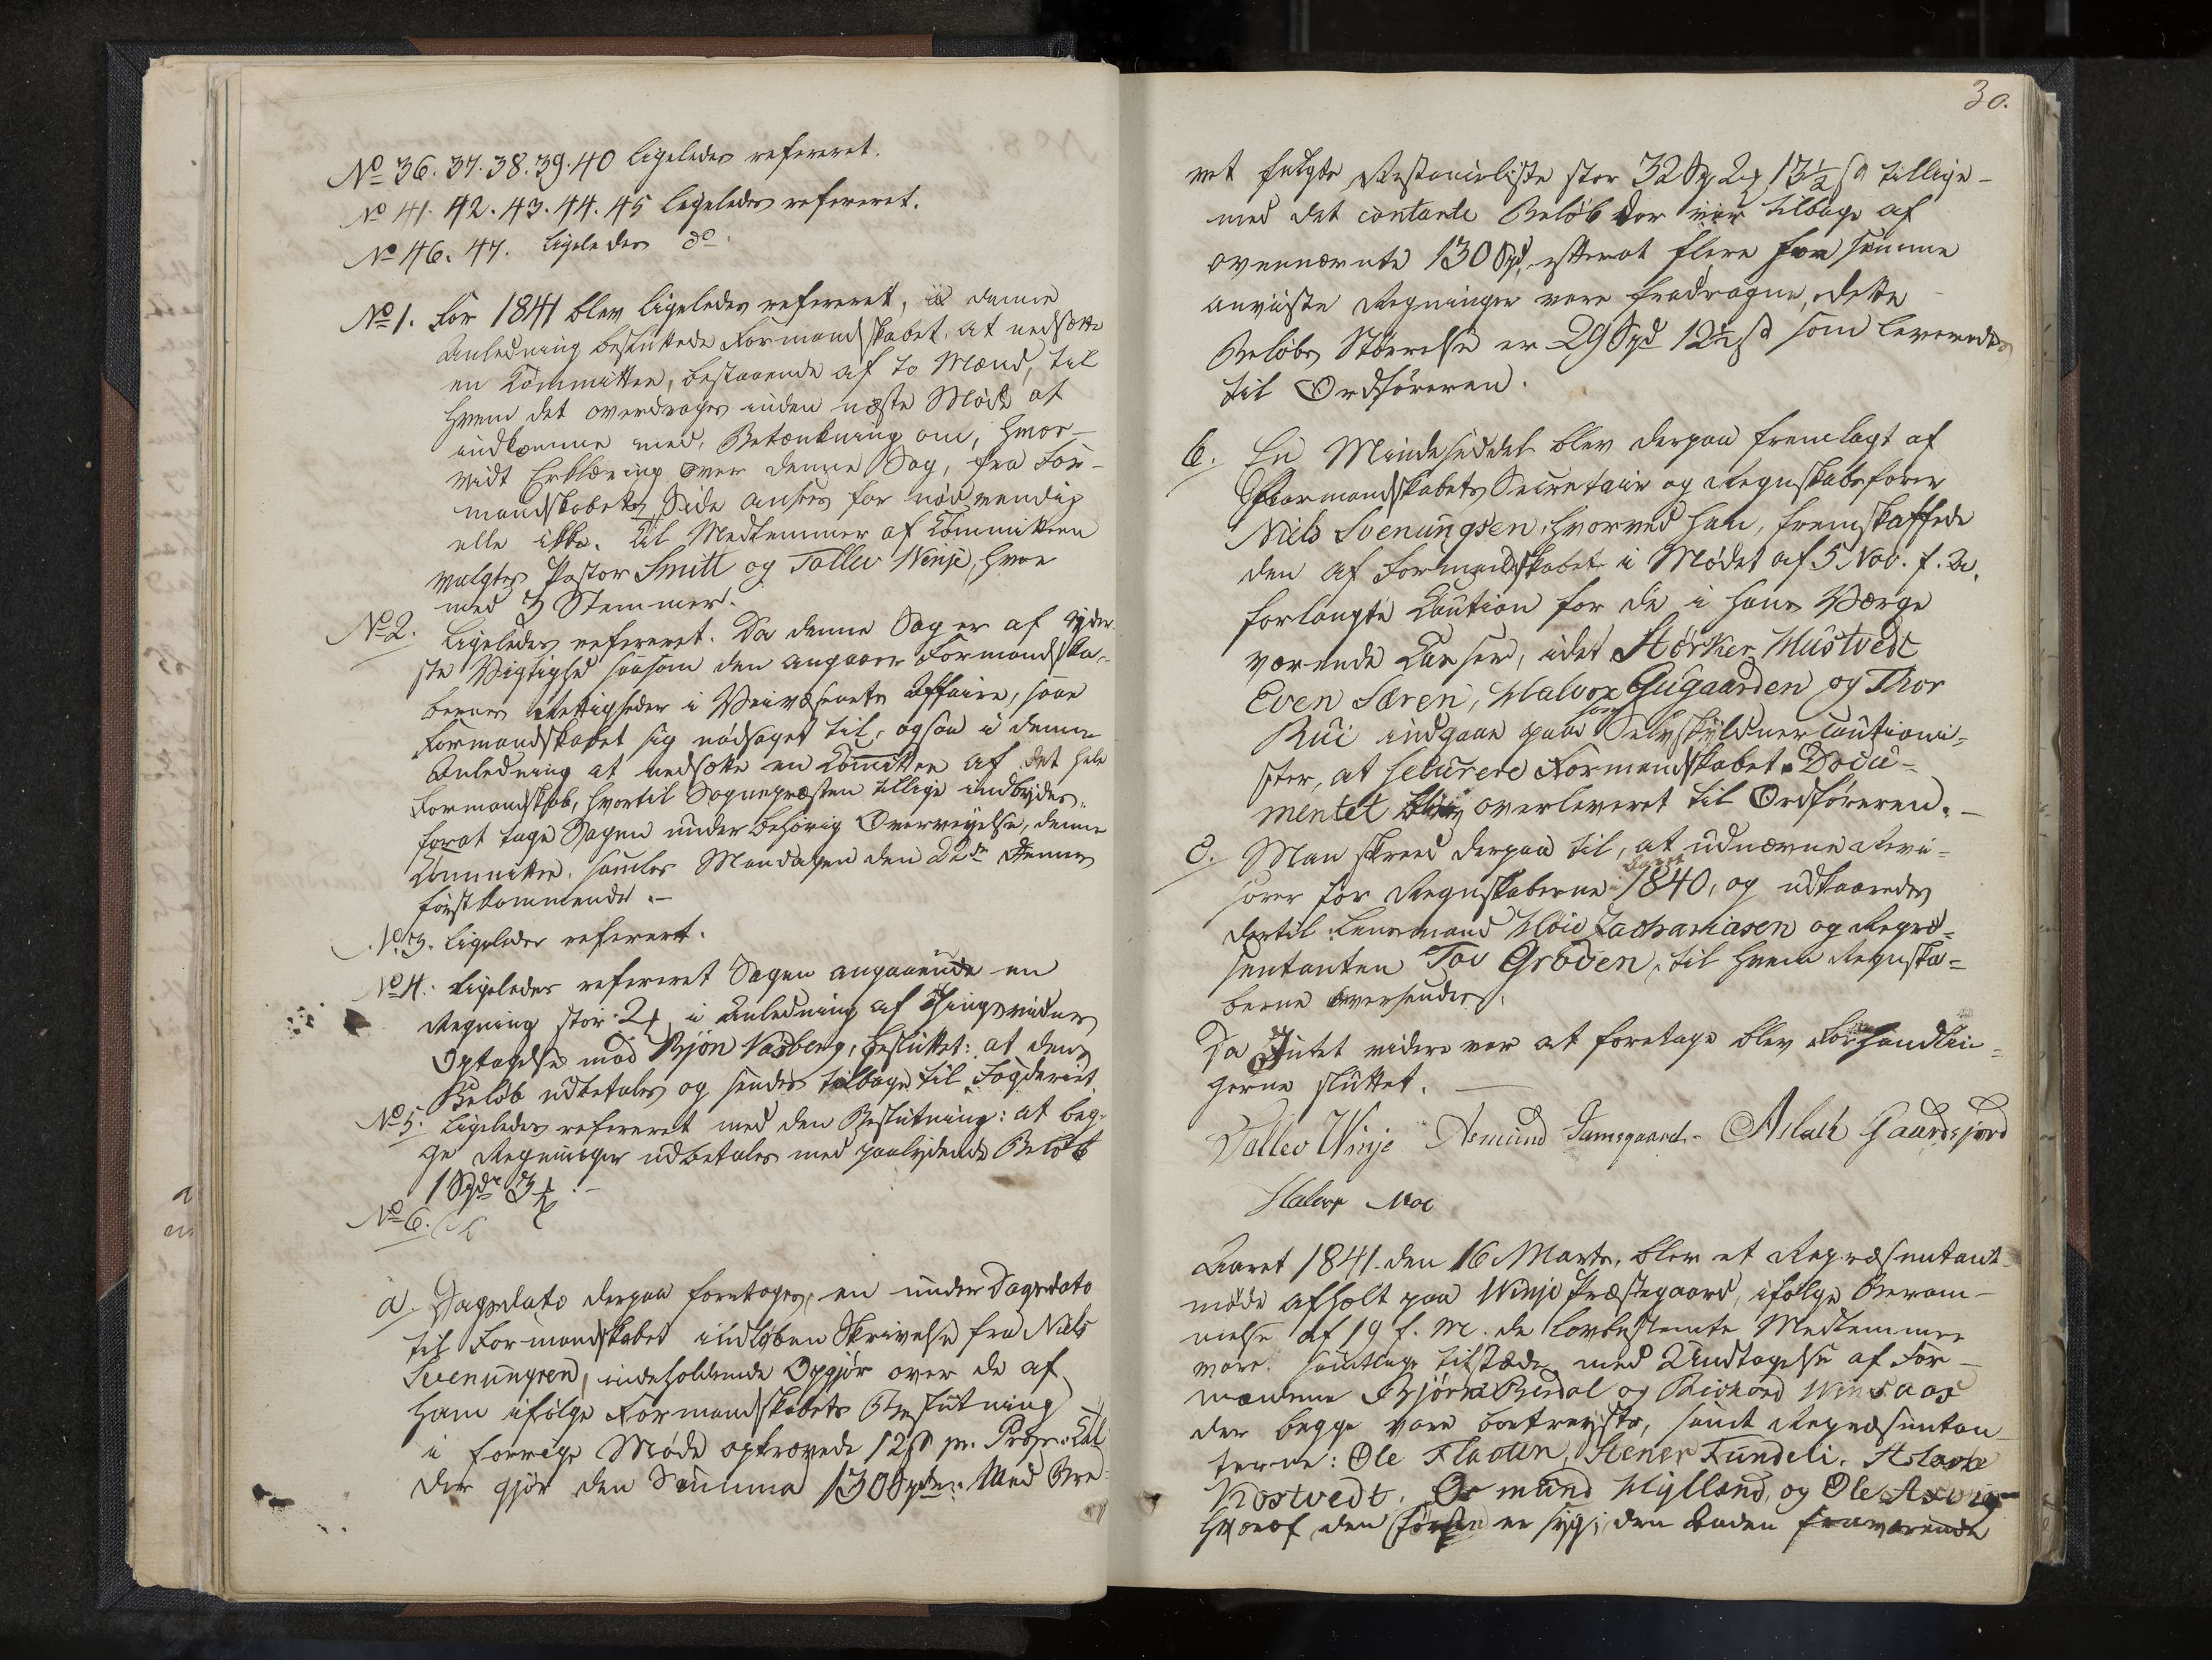 No 36. 37. 38. 39. 40 ligeledes refereret.
No 41. 42. 43. 44. 45 ligeledes refereret.
No 46. 47. ligeledes do
No 1. For 1841 blev ligeledes refereret, i denne
Anledning besluttede Formandskabet, at nedsætte
en Committee, bestaaende af to Mænd, til
hvem det overdrages inden næste Møde at
indkomme med, Betænkning om, hvor-
vidt Erklæring over denne Sag, fra For-
mandskabets Side ansees for nødvendig
elle ikke. Til Medlemmer af Committeen
valgtes Pastor Smitt og Tallev Winje, hver
med 3 Stemmer.
No 2. Ligeledes refereret. Da denne Sag er af yder-
ste Vigtighed saasom den angaaer Formandska-
bernes Rettigheder i Veivæsenets Affaire, saae
Formandskabet sig nødsaget til, ogsaa i denne
Anledning at nedsætte en Committee af det hele
Formandskab, hvortil Sognepræsten tillige indbydes,
forat tage Sagen under behørig Overveyelse, denne
Committee samles Mandagen den 22de dennes
førstkommende.-
No 3. Ligeledes refereret.
No 4. Ligeledes refereret Sagen angaaende en
Regning stor 2 i Anledning af Thingsvidnes
Optagelse mod Bjøn Vaasberg, besluttet: at dens
Beløb udbetales og sendes tilbage til Fogderiet.
No 5. Ligeledes refereret med den Beslutning: at beg-
ge Regninger udbetales med paalydende Beløb
1 Spdr 3
No 6.
a. Dagsdato derpaa foretoges, en under Dagsdato
til Formandskabet indløben Skrivelse fra Niels
Svenungsen, indeholdende Opgjør over de af
ham ifølge Formandskabets Beslutning
i forrige Møde optrævede 12 s pr.
der gjør den Summa 130 Spdr. Med
30.
vet fulgte Restanceliste stor 32 Sp 2 13½ s tillige-
med det contante Beløb der var tilbage af
ovennævnte 130 Spd, efterat flere for samme
anviiste Regninger vare fradragne, dette
Beløbs Størrelse er 29 Spd 12½ s som leveredes
til Ordføreren.
b. En Mindeseddel blev derpaa fremlagt af
Formandskabets Secretair og Regnskabsfører
Niels Svenungsen, hvorved han, fremskaffede
den af Formandskabet i Mødet af 5 Nov. f. A.
forlangte Caution for de i hans Værge
værende Casser, idet Størker Mustvedt
Even Særen, Halvor Gugaarden og Thor
Rui indgaae som Selvskyldnercautioni-
ster, at securere Formandskabet. Docu-
mentet blev overleveret til Ordføreren.-
c. Man skreed derpaa til, at udnævne Revi-
sorer for Regnskaberne i Aaret 1840, og udkaaredes
dertil: Lensmand Høie Zachariasen og Repræ-
sentanten Tov Groden, til hvem Regnska-
berne oversendes.
Da Intet videre var at foretage blev Forhandlin-
gerne sluttet.
Tallev Winje Asmund Jamsgaard. Aslack Gaardsjord
Halvor Moe
Aaret 1841 den 16 Marts, blev et Repræsentant-
møde afholdt paa Winje Præstegaard, ifølge Beram-
melse af 19 f. M. de lovbestemte Medlemmer
vare samtlige tilstæde med Undtagelse af For-
mændene Bjørn Berdal og Richard Winsaas
der begge vare bortreyste, samt Repræsentan-
terne: Ole Flaaten, Stener Fundeli, Aslack
Kostvedt, Osmund Hylland, og Ole Asvig
hvoraf den første er syg; den Anden fraværende